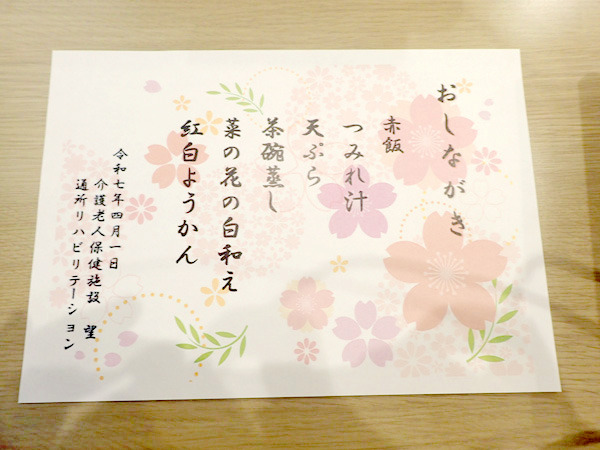 おしながき
赤飯
つみれ汁
天ぷら
茶碗蒸し
菜の花の白和え
紅白ようかん
令和七年四月一日
介護老人保健施設 望
通所リハビリテーション